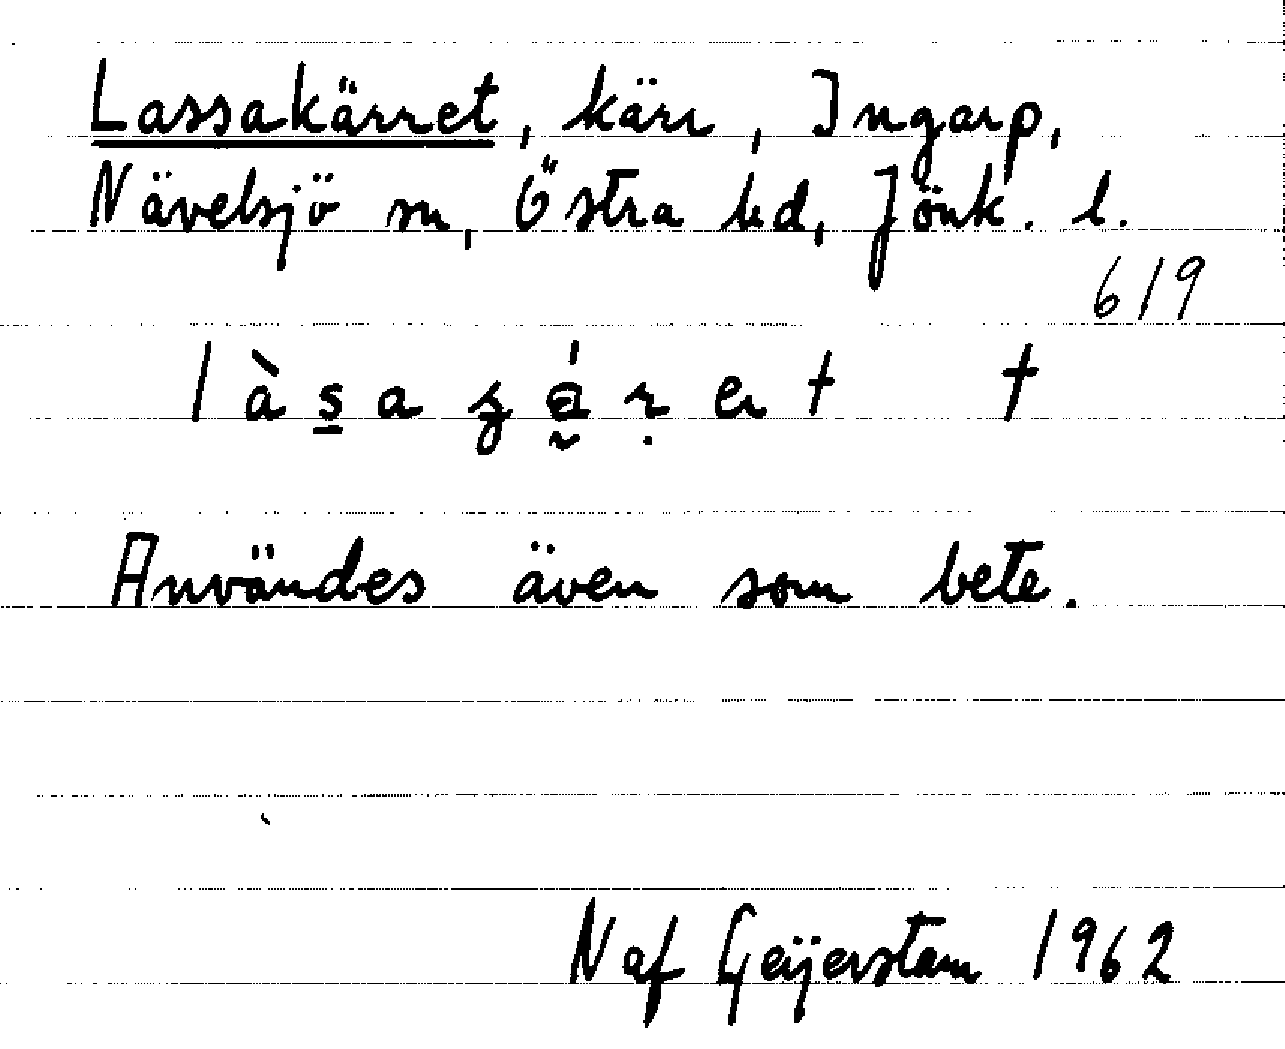 Lassakärret, kärr, Ingarp,
Nävelsjö sn, Östra hd, Jönk. l.
619
Användes även som bete.
N af Geijerstam 1962